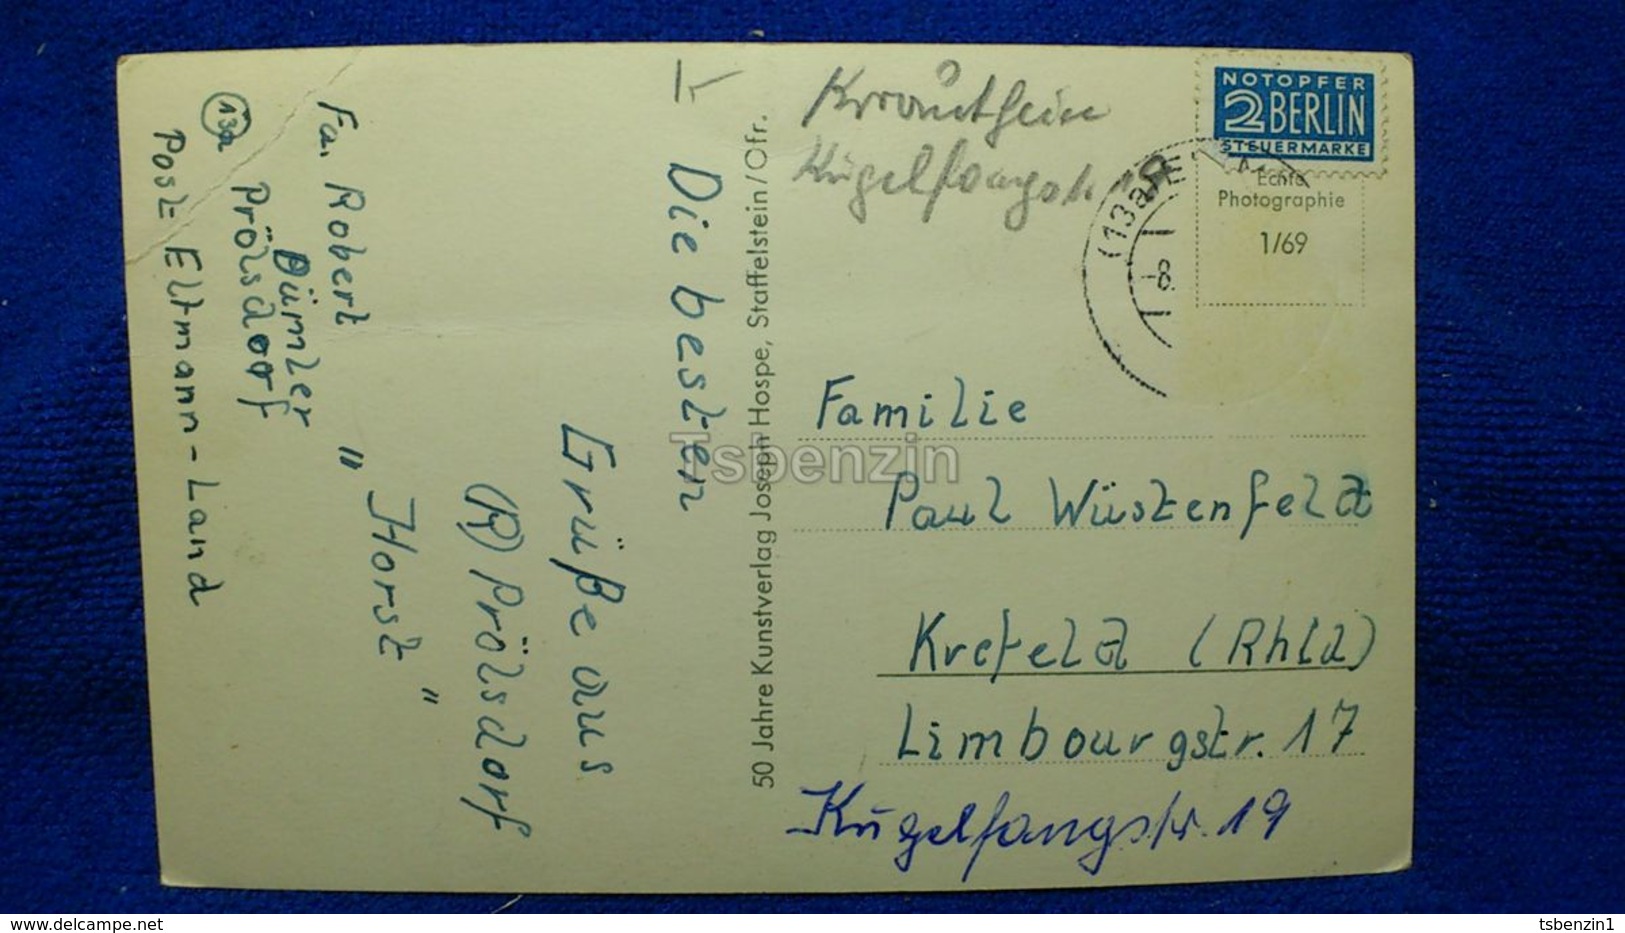 Fa. Robert
Dümler
Prölsdorf
13a
Post Eltmann-Land
Die besten
Grüße aus
(R) Prölsdorf
" Horst "
50 Jahre Kunstverlag Joseph Hospe, Staffelstein/Ofr.
Krautheim
Kugelfangstr. 19
NOTOPFER
2 BERLIN
STEUERMARKE
(13a)
-8.
Echte
Photographie
1/69
Familie
Paul Wüstenfeld
Krefeld (Rhld)
Limbourgstr. 17
Kugelfangstr. 19
Tsbenzin
delcampe.net
tsbenzin1